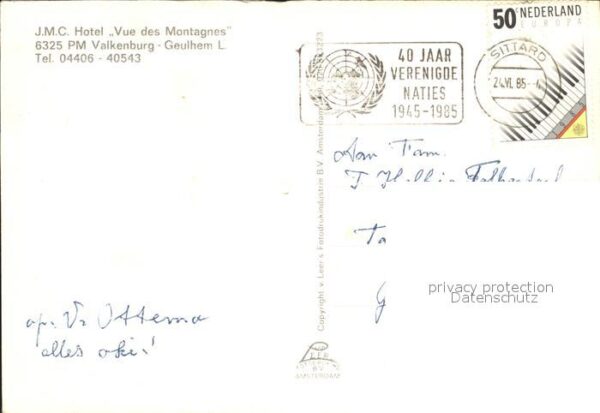 J.M.C. Hotel „Vue des Montagnes"
6325 PM Valkenburg - Geulhem L.
Tel. 04406 - 40543
40 JAAR
VERENIGDE
NATIES
1945-1985
SITTARD
24.VI.85
50c NEDERLAND
EUROPA
Aan Fam.
Copyright v. Leer's Fotodrukindustrie B.V. Amsterdam
privacy protection
Datenschutz
Ottema
alles oké!
LEER
B.V.
AMSTERDAM